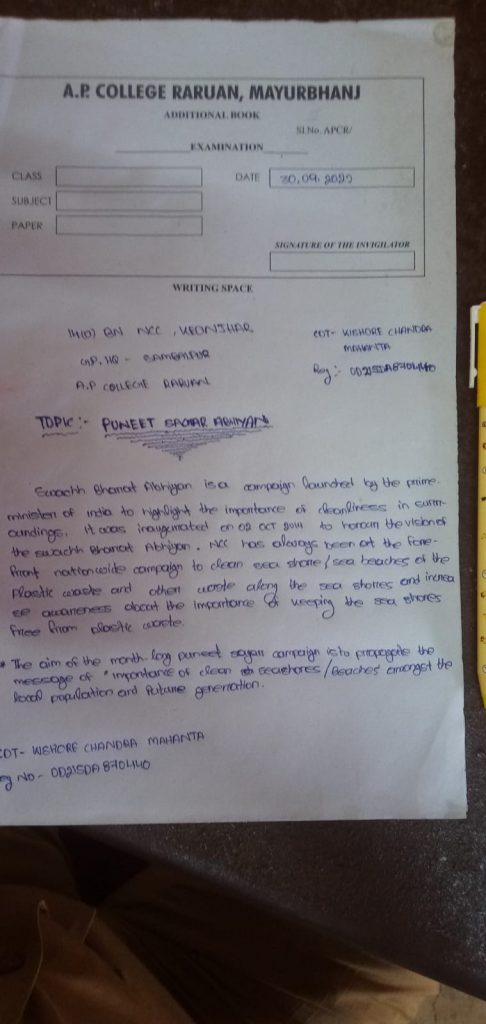 A.P. COLLEGE RARUAN, MAYURBHANJ
ADDITIONAL BOOK
Sl.No. APCR/
EXAMINATION
CLASS
DATE 30.09.2022
SUBJECT
PAPER
SIGNATURE OF THE INVIGILATOR
WRITING SPACE
14(O) BN NCC, KEONJHAR
CDT- KISHORE CHANDRA
MAHANTA
GP. HQ - SAMBALPUR
Reg :- OD21SDA870440
A.P COLLEGE RARUAN
TOPIC :- PUNEET SAGAR ABHIYAN
Swachh Bharat Abhiyan is a campaign launched by the prime
minister of india to highlight the importance of cleanliness in surr-
oundings. It was inaugurated on 02 OCT 2014 to honour the vision of
the swachh Bharat Abhiyan. NCC has always been at the fore-
front nationwide campaign to clean sea shore/sea beaches of the
plastic waste and other waste along the sea shores and increa
se awareness about the importance of keeping the sea shores
free from plastic waste.
* The aim of the month-long puneet sagar campaign is to propagate the
message of "importance of clean seashores/Beaches amongst the
local population and future generation.
CDT- KISHORE CHANDRA MAHANTA
NO - OD21SDA870440